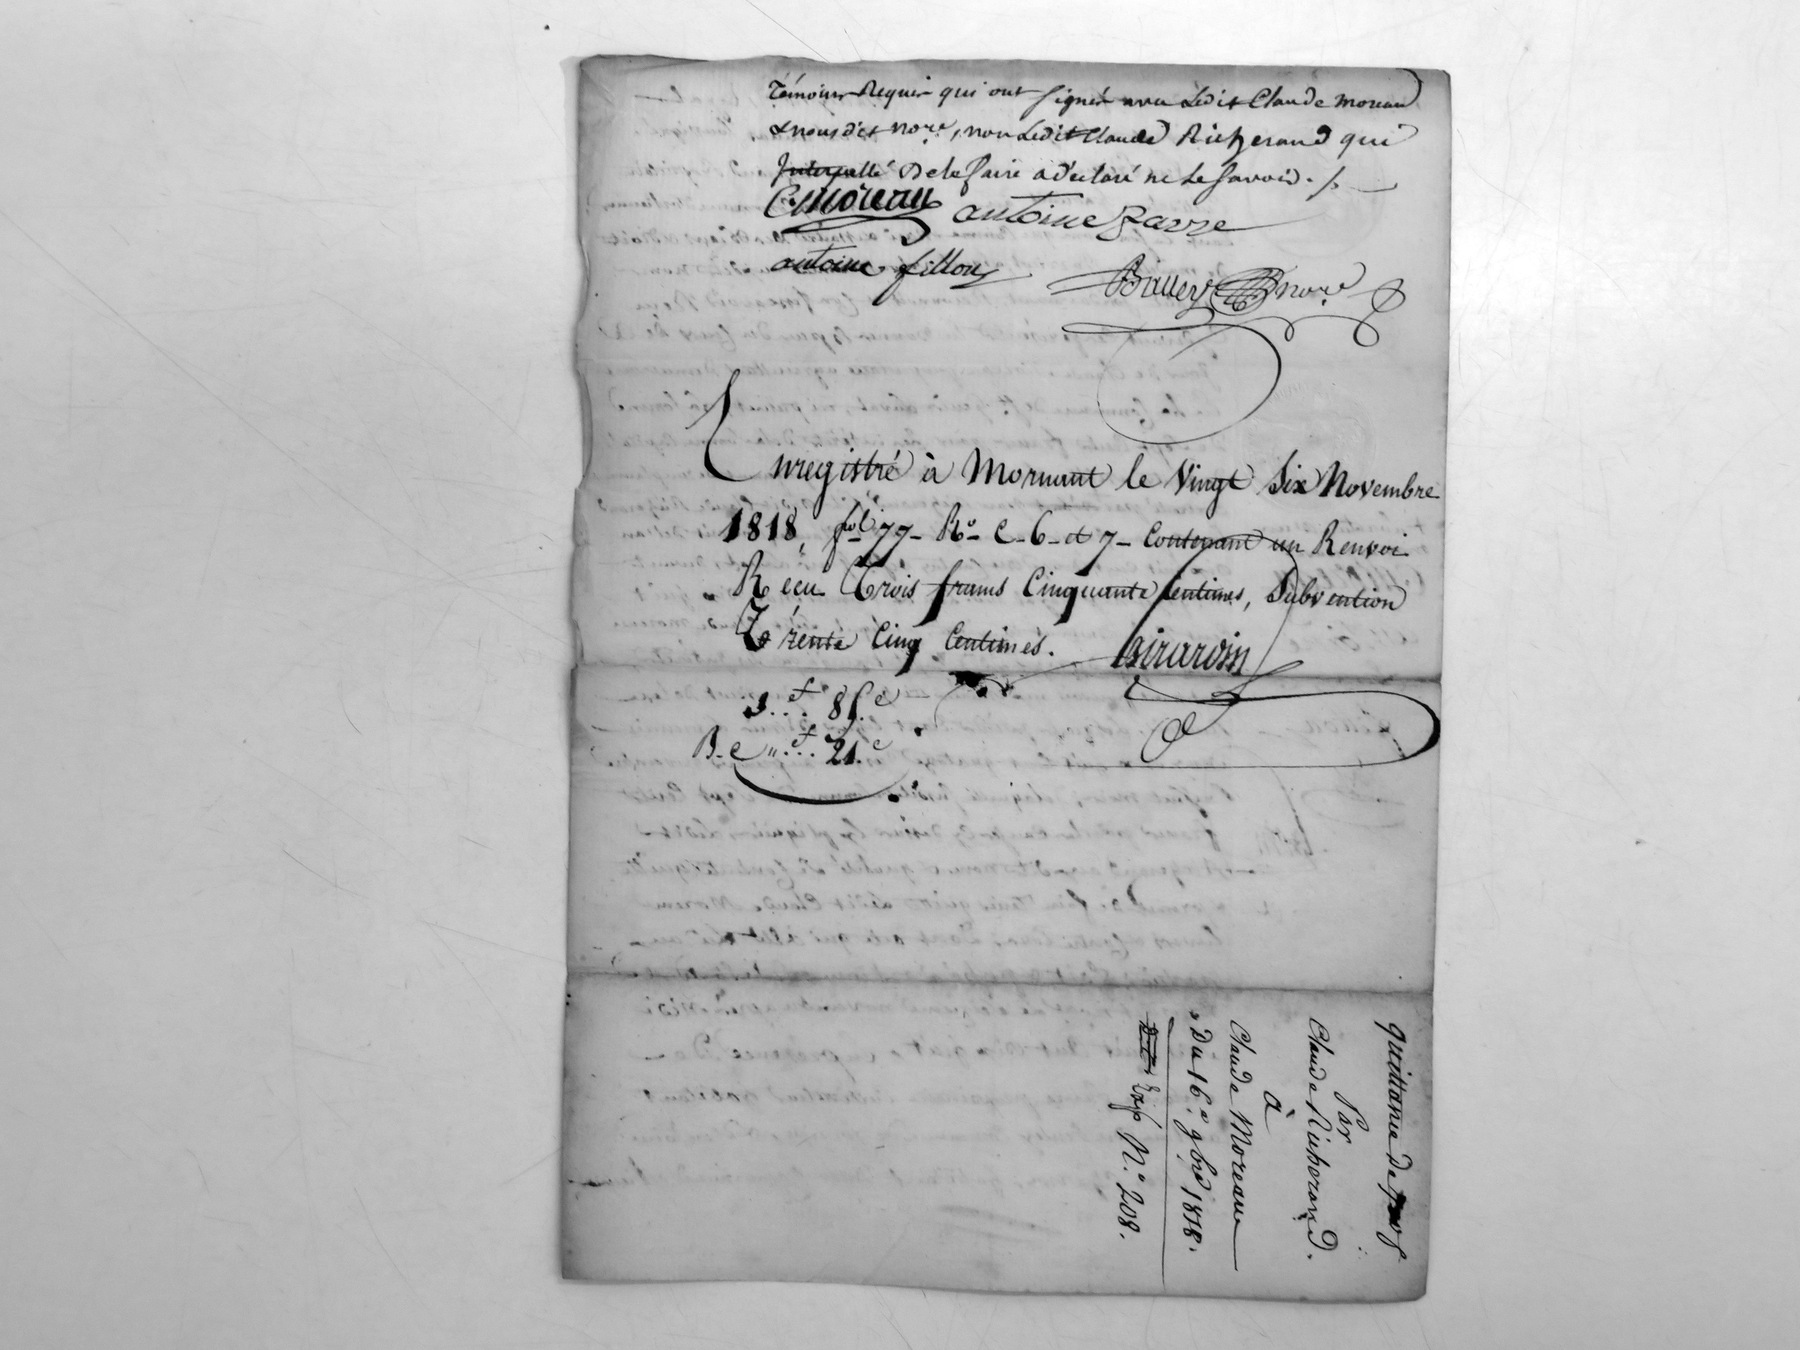 témoins Requis qui ont signés avec Ledit Claude Moreau
& nous dit no.re, non Ledit Claude Richerand qui
Interpellé De le faire a Déclaré ne le savoir ./.
C. Moreau antoine Zarre
antoine fillon
no.re
Enregistré à Mornant le Vingt Six Novembre
1818, fol 77 – R.o – C – 6 – et 7 – Contenant un Renvoi
Recu Trois francs Cinquante Centimes, Subvention
Trente Cinq Centimes. Girardin
3..f.. 85.c
B.e "..f.. 21.c
quittance de
Par
Claude Richerand.
à
Claude Moreau
Du 16.e 9bre 1818.
Exp N.o 208.